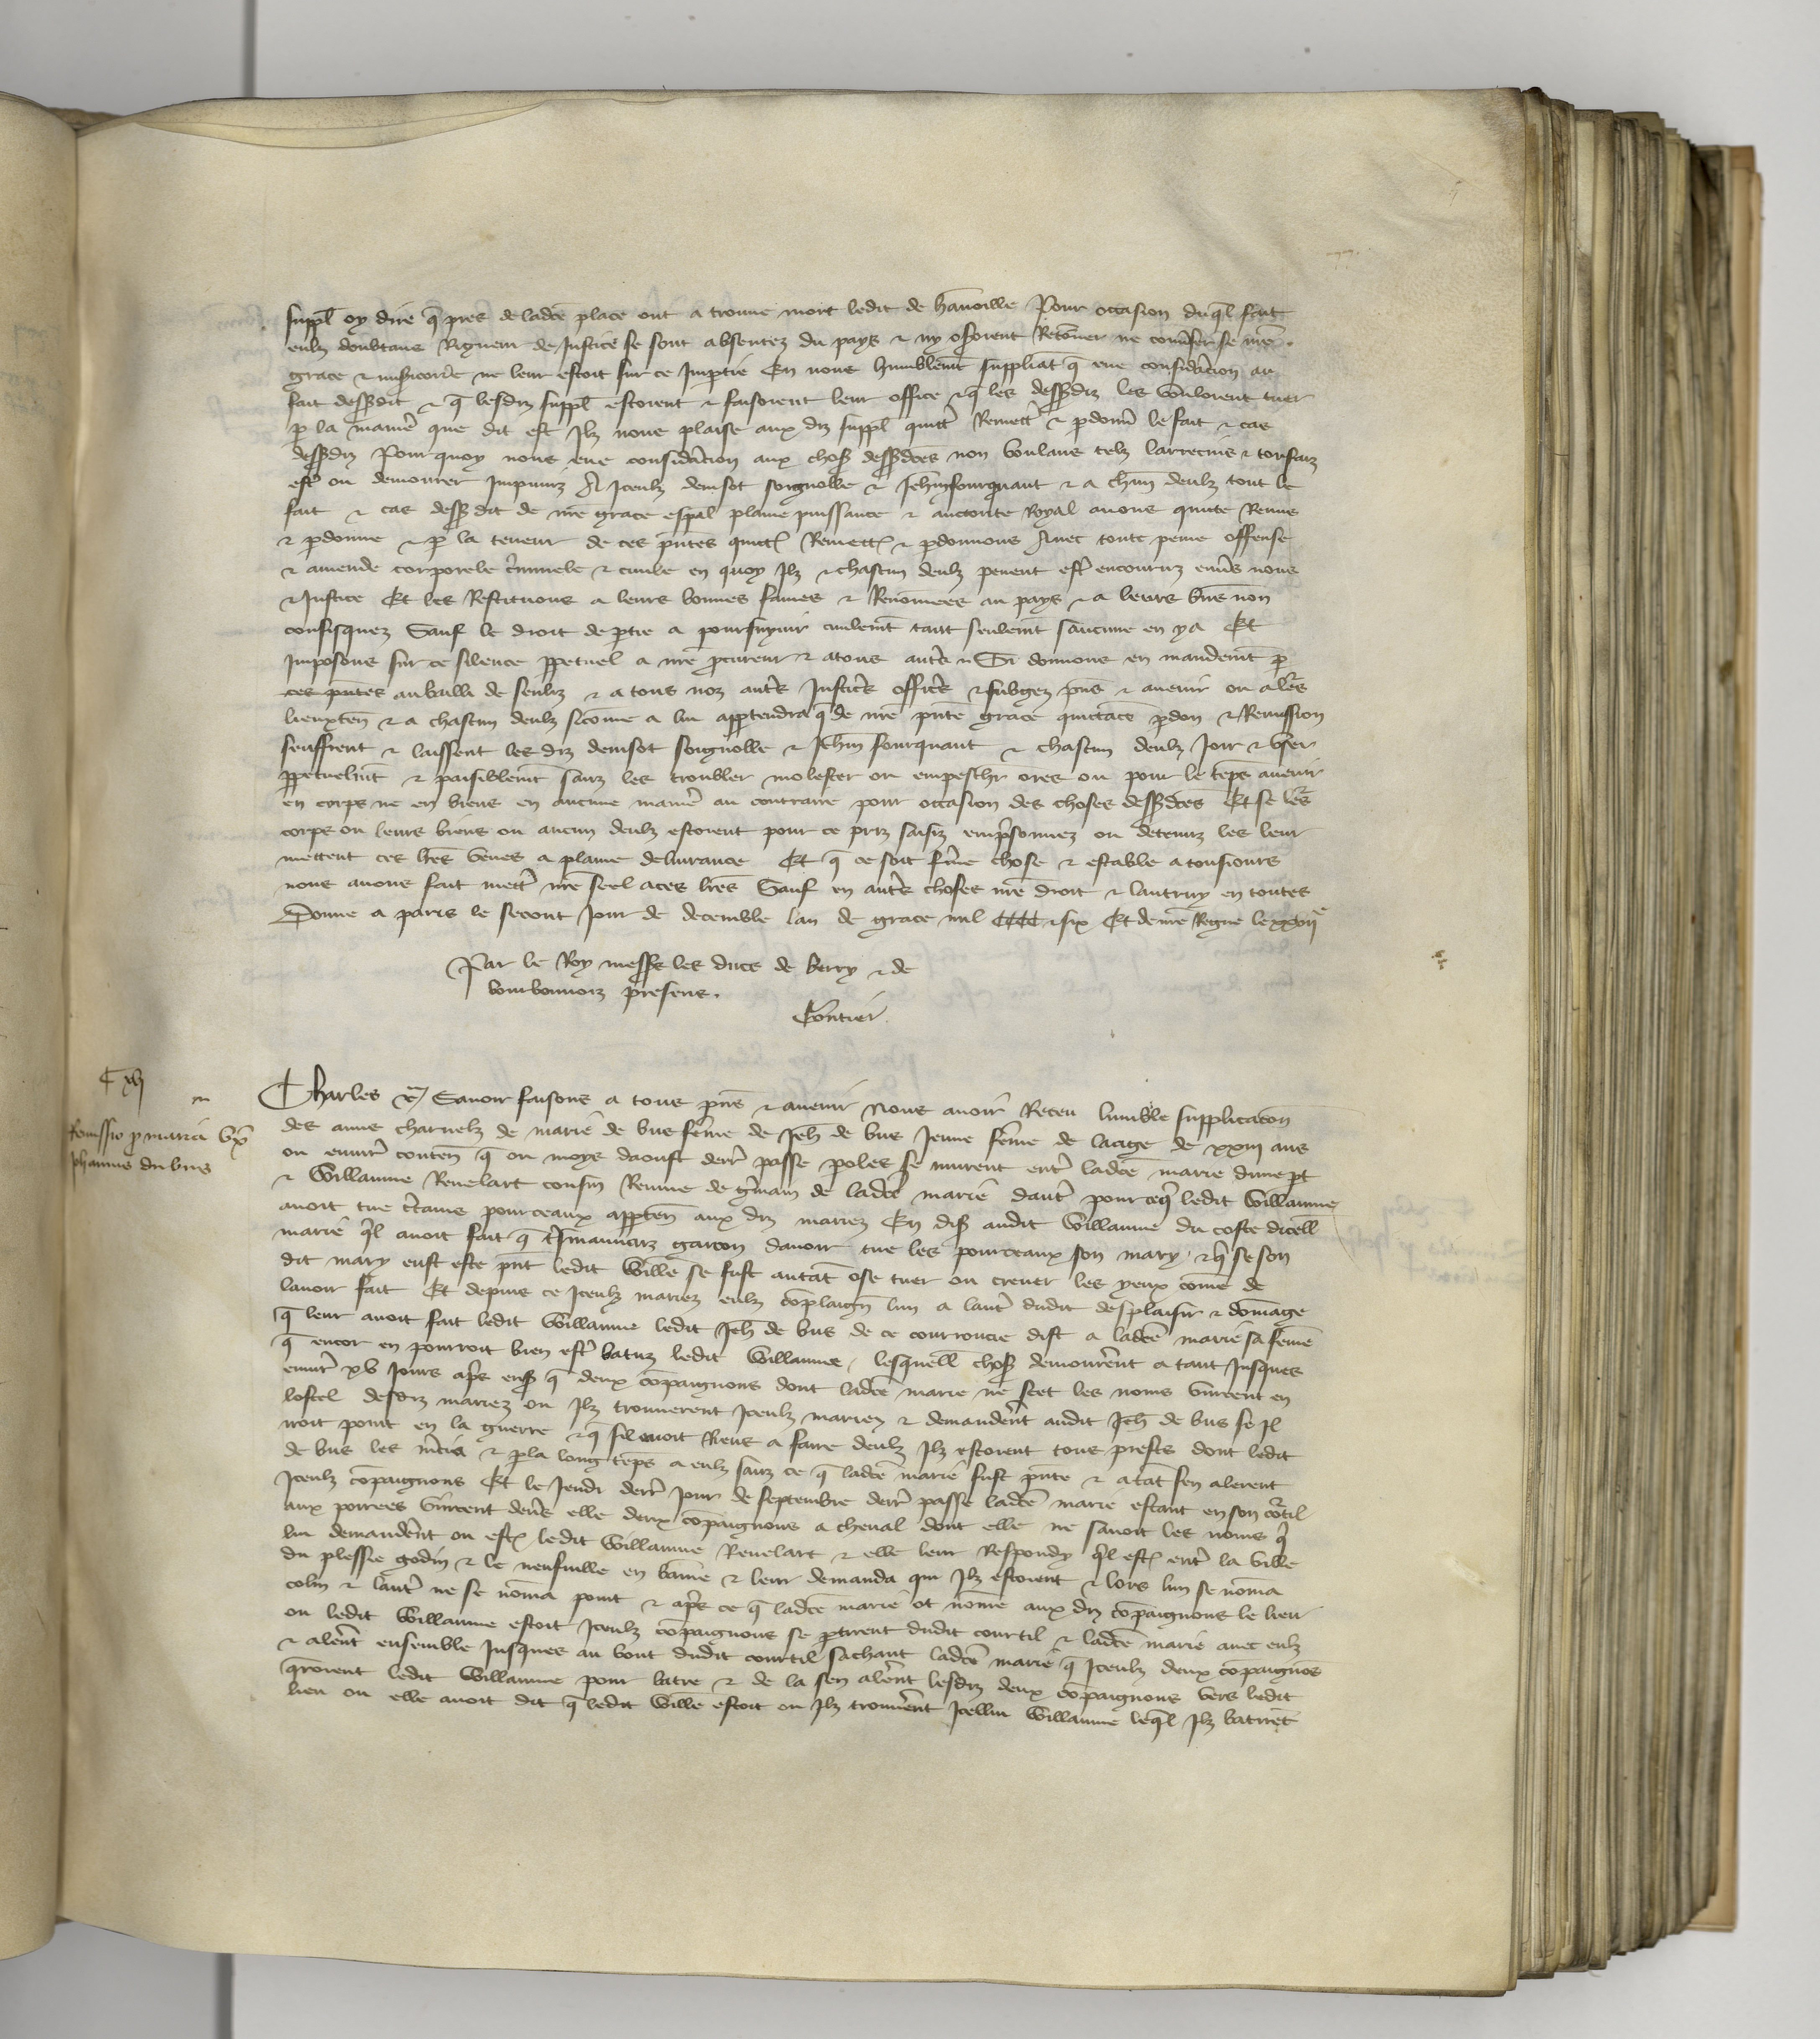 suppl oy dire q̃ pres de ladcē place ont a trouue mort ledit de hanoille Pour occasion duq̃l fait
eulz doubtans Rigueur de Justice se sont absentez du pays ⁊ ny oseroient Retourner ne conuerser se nr̃e
grace ⁊ misericorde ne leur estoit sur ce Imptie En nous humblemt̃ suppliãt q̃ eue considãcion au
fait dessusdit ⁊ q̃ lesdiz suppl estoient ⁊ faisoient leur office ⁊ q̃ les dessusdiz les vouloient tuer
p la maniẽ que dit est Ilz nous plaise aux diz suppl quittẽ Remettẽ ⁊ pdonnẽ le fait ⁊ cas
dessusdiz Pour quoy nous eue considãcion aux chosẽ dessusdcẽs non voulans telz larrecins ⁊ torfaiz
estẽ ou demourer Impuniz A Iceulz denisot soignolle ⁊ Jehin fourquant ⁊ a chũn deulz tout le
fait ⁊ cas dessusdit de nr̃e grace espãl plaine puissance ⁊ auctorite Royal auons quitte Remis
⁊ pdonne ⁊ p la teneur de ces pñtes quitt̃ Remett̃ ⁊ pdonnons Auec toute peine offense
⁊ amende corporele cr̃iminele ⁊ ciuile en quoy Ilz ⁊ chascun deulz peuent estẽ encouruz enuẽs nous
⁊ Justice Et les Restituons a leurs bonnes fames ⁊ Renõmees au pays ⁊ a leurs bñs non
confisquez Sauf le droit de ptie a poursuyuir ciuilemt̃ tant seulemt̃ saucune en y a Et
Imposons sur ce silence ppetuel a nr̃e pcureur ⁊ a tous autẽs Si donnons en mandemt̃ p
ces pñtes au bailli de senliz ⁊ a tous noz autẽs Justicẽs officẽs ⁊ subgez pñs ⁊ auenir ou a lẽs
lieuxteñ ⁊ a chascun deulz sicõme a lui apptendra q̃ de nr̃e pñte grace quittãce pdon ⁊ Remission
seuffrent ⁊ laissent les diz denisot soignolle ⁊ Jehin fourquant ⁊ chascun deulz Joir ⁊ vser
ppetuelmt̃ ⁊ paisiblemt̃ sanz les troubler molester or empeschr̃ ores ou pour le tẽps auenir
en corps ne en biens en aucune maniẽ au contraire pour occasion des choses dessusdcẽs Et se lẽs
corps ou leurs biens ou aucun deulz estoient pour ce priz saisiz emprisonnez ou detenuz les leur
mettent ces lr̃es veues a plaine deliurance Et q̃ ce soit fẽme chose ⁊ estable a tousiours
nous auons fait mettẽ nr̃e seel a ces lr̃es Sauf en autẽs choses nr̃e droit ⁊ lautruy en toutes
Donne a paris le second Jour de decembre lan de grace mil CCCC ⁊ six Et de nr̃e Regne le xxvii e
Par le Roy messrs les ducs de berry ⁊ de
bourbonnoiz presens.
Contier

C xlj
Remissio p maria vx̃
Johannis du bus
Charles ⁊c̃ Sauoir faisons a tous pñs ⁊ auenir Nous auoir Receu lumble supplicacõn
des amis charnelz de marie de bus fẽme de Jeh̃ de bus Jeune fẽme de laage de xxiii ans
ou enuirẽ conteñ q̃ ou moys daoust derrẽ passe poles se murent entẽ ladcẽ marie dune pt
⁊ Willaume Reuelart cousin Remue de gẽmain de ladcẽ marie dautẽ pourceq̃ ledit Willaume
auoit tue cẽtains pourceaux appteñ aux diz mariez En disẽ audit Willaume du coste dicell
marie q̃l auoit fait q̃ tr̃smauuaiz garcon dauoir tue les pourceaux son mary ⁊ q̃ se son
dit mary eust este pñt ledit Wille se fust autãt ose tuer ou creuer les yeux cõme de
lauoir fait Et depuis ce Iceulz mariez eulz cõplaigñ lun a lautẽ dudit desplaisir ⁊ dõmage
q̃ leur auoit fait ledit Willaume ledit Jeh̃ de bus de ce courroucie dist a ladcẽ marie sa fẽme
q̃ encor en pourroit bien estẽ batuz ledit Willaume, lesquell chosẽ demourẽrent a tant Jusques
enuirẽ xv Jours apẽs ensẽ q̃ deux cõpaignons dont ladcẽ marie ne scet les noms vindrent en
lostel desdiz mariez ou Ilz trouuerent Iceulz mariez ⁊ demandẽrt audit Jeh̃ de bus se Il
iroit point en la guerre ⁊ q̃ sil auoit Riens a faire deulz Ilz estoient tous prests dont ledit
de bus les mẽcia ⁊ pla long tẽps a eulz sanz ce q̃ ladcẽ marie fust pñte ⁊ a tãt sen alerent
Iceulz cõpaignons Et le Jeudi derrẽ Jour de septembre derrẽ passe ladcẽ marie estant en son cõtil
aux porrees vindrent deuẽs elle deux cõpaignons a cheual dont elle ne sauoit les noms q̃
lui demandẽnt ou est̃ ledit Willaume Reuelart ⁊ elle leur Respondy q̃l est̃ entẽ la ville
du plessie godin ⁊ le neufuille en baine ⁊ leur demanda qui Ilz estoient ⁊ lors lun se nõma
colin ⁊ lautẽ ne se nõma point ⁊ apẽs ce q̃ ladcẽ marie ot nõme aux diz cõpaignons le lieu
ou ledit Willaume estoit Iceulz cõpaignons se ptirent dudit courtil ⁊ ladcẽ marie auec eulz
⁊ alẽnt ensemble Jusques au bout dudit courtil sachant ladcẽ marie q̃ Iceulz deux cõpaignõs
q̃roient ledit Willaume pour batre ⁊ de la sen alẽnt lesdiz deux cõpaignons vers ledit
lieu ou elle auoit dit q̃ ledit Wille estoit ou Ilz trouuẽrent Icellui Willaume leq̃l Ilz batirẽt